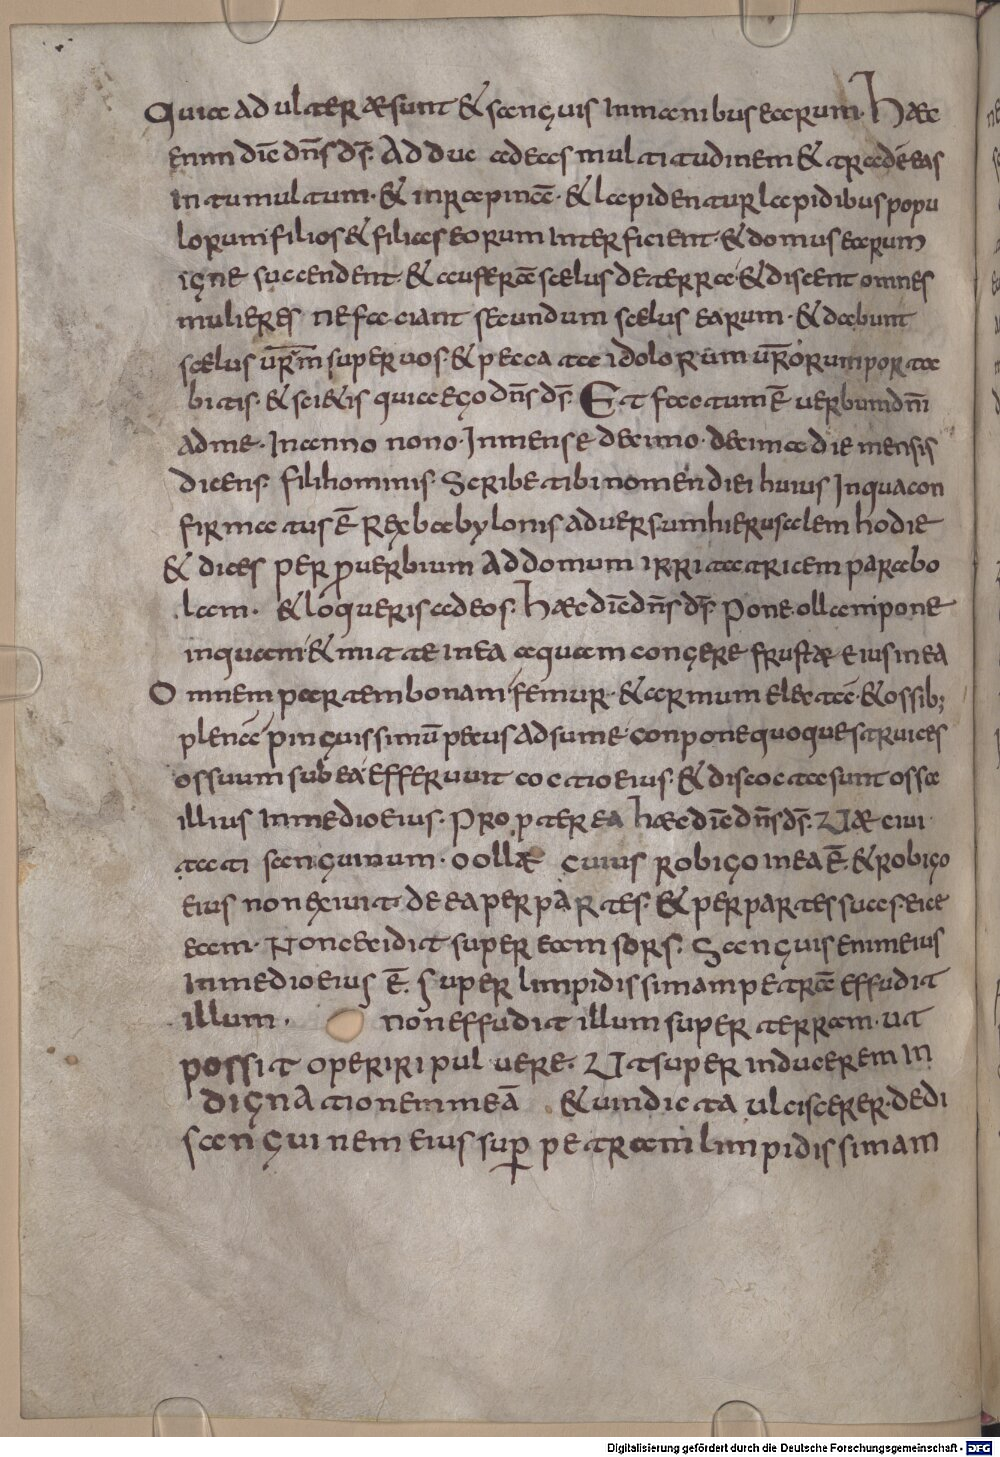 Quia adulteræ sunt & sanguis in manibus earum. Hæc
enim diċ dn̄s ds̄. Adduc ad eas multitudinem & trade eas
in tumultum. & in rapinā. & lapidentur lapidibus popu
lorum filios & filias eorum interficient. & domus earum
igne succendent. & auferā scelus de terra. & discent omnes
mulieres ne faciant secundum scelus earum. & dabunt
scelus ur̄m super uos. & peccata idolorum ur̄orum porta
bitis. & sci&is quia ego dn̄s ds̄. Et factum ē uerbum dn̄i
ad me. In anno nono. In mense decimo. decima die mensis
dicens. fili hominis. Scribe tibi nomen diei huius In qua con
firmatus ē Rex babylonis aduersum hierusalem hodie
& dices per prouerbium Ad domum irritatricem parabo
lam. & loqueris ad eos. Hæc diċ dn̄s ds̄. Pone ollam pone
inquam & mitte in ea aquam congere frustæ eius in ea
Omnem partem bonam femur. & armum electā. & ossib;
plenā pinguissimū pecus adsume. conpone quoque struices
ossuum sub eā Efferuuit coctio eius. & discocta sunt ossa
illius in medio eius. Propterea hæc diċ dn̄s ds̄. Uæ ciui
tati sanguinum. o ollæ cuius robigo in ea ē. & robigo
eius non exiuit de ea per partes. & per partes suas eice
eam. Non cecidit super eam sors. Sanguis enim eius
in medio eius ē. super limpidissimam petrā effudit
illum. non effudit illum super terram. ut
possit operiri puluere. Ut super inducerem in
dignationem meā & uindicta ulciscerer. dedi
sanguinem eius sup̱ petram limpidissimam
Digitalisierung gefördert durch die Deutsche Forschungsgemeinschaft - DFG